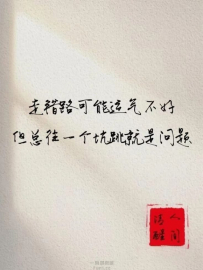 走错路可能运气不好
但总往一个坑跳就是问题
人间
清醒